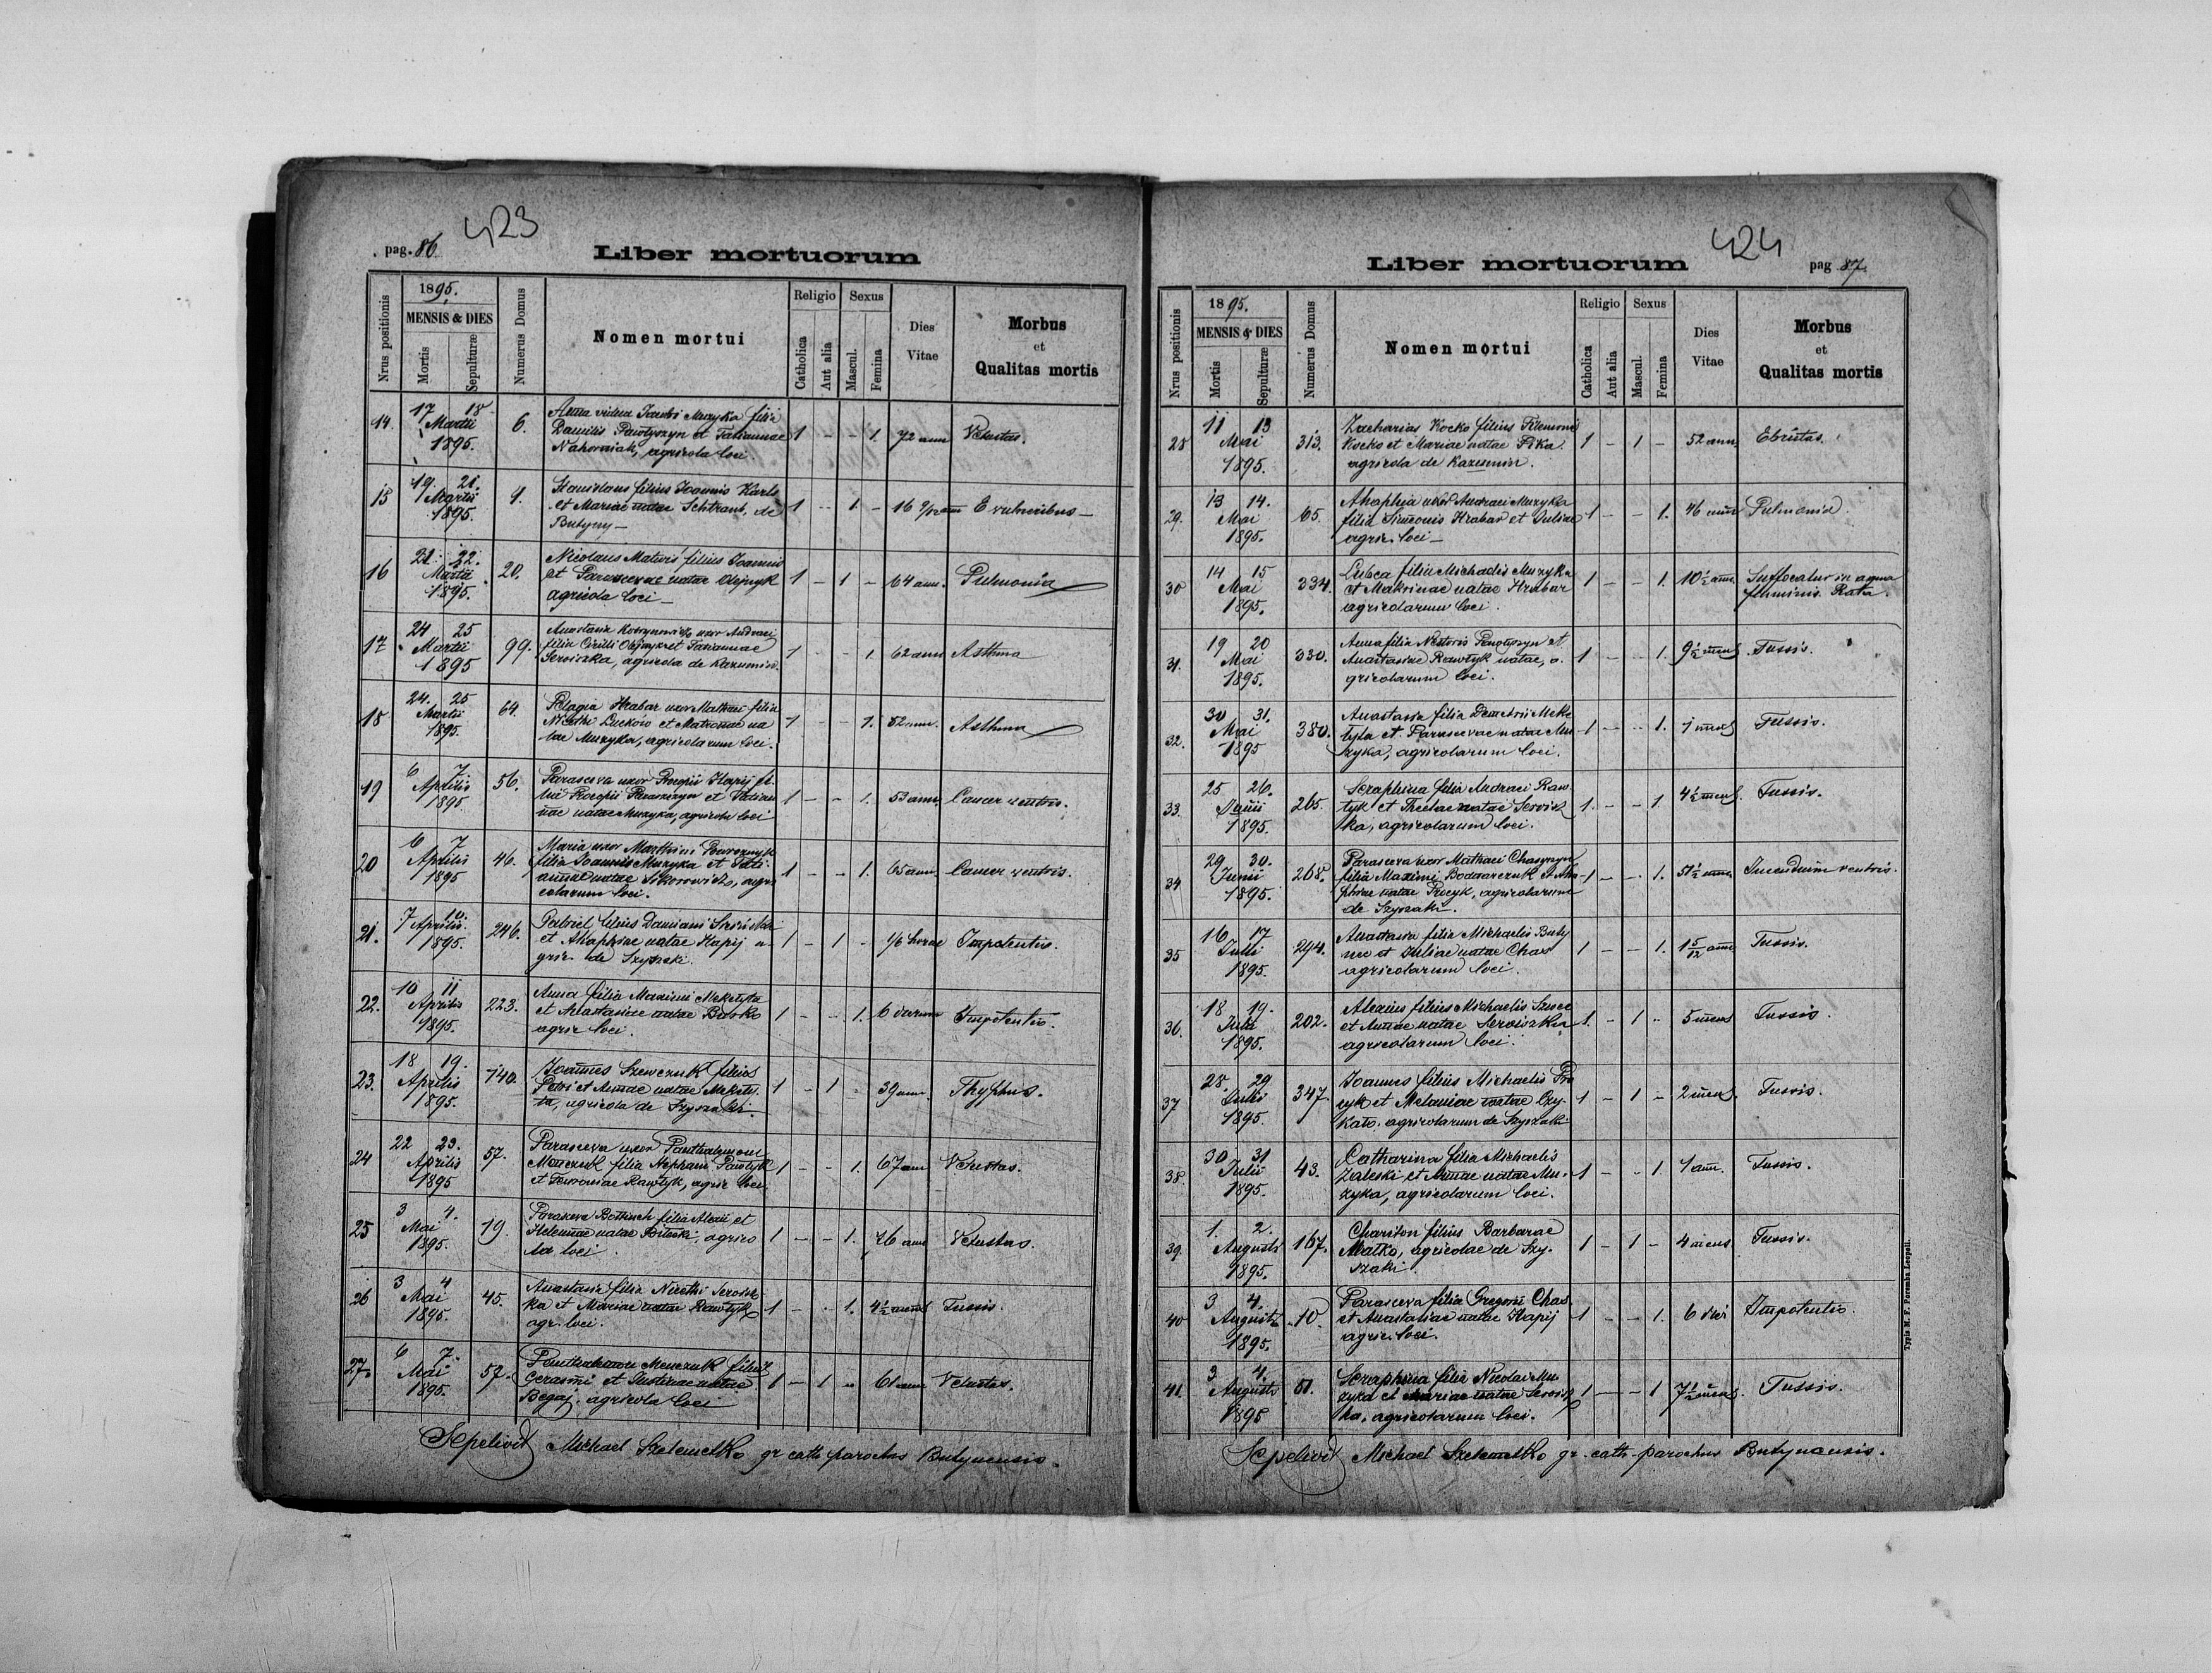 pag. 86.
423
Liber mortuorum
Nrus positionis
1895.
MENSIS & DIES
Mortis
Sepulturæ
Numerus Domus
Nomen mortui
Religio
Catholica
Aut alia
Sexus
Mascul.
Femina
Dies
Vitae
Morbus
et
Qualitas mortis
14. 17 18 Martii 1895. 6. 1 - - 1. 72 ann. Vetustas.
Anna vidua Jacobi Muzyka filia
Danilis Pawłyszyn et Tatiannae
Nahorniak, agricola loci.
15 19. 21. Martii 1895. 4. 1 - 1 - 16 E vulneribus
Stanislaus filius Joannis Karls
et Mariae natae Schtraub, de
Butyny
16 21. 22. Martii 1895. 20. 1 - 1 - 64 ann. Pulmonia
Nicolaus Matwis filius Joannis
et Parascevae natae Olejnyk
agricola loci
17 24 25 Martii 1895 99. 1 - - 1 62 ann Asthma
Anastasia uxor Andreae
filia Cirilli Olijnyk et Tatiannae
Serwiszka, agricola de Kazumin.
18 24. 25 Martii 1895. 64. 1 - - 1. 52 ann. Asthma
Pelagia Hrabar uxor Mathaei filia
Luckow et Matronae na
tae Muzyka, agricolarum loci.
19 6 7. Aprilis 1895. 56. 1 - - 1. 53 ann. Cancer ventris.
Parasceva uxor Procopii Kapij fi-
lia Procopii et Tatian
nae natae Muzyka, agricola loci
20 6 7 Aprilis 1895 46. 1 - - 1. 65 ann. Cancer ventris.
Maria uxor
filia Joannis Muzyka et Tati-
annae natae agri
colarum loci.
21. 7 10. Aprilis. 1895. 246. 1 - 1 - 1/6 horae Impotentis.
Gabriel filius Damiani
et Ahaphiae natae Kapij a-
gric. de Szyszaki.
22. 10 11 Aprilis 1895. 223. 1 - - 1. 6 Impotentis.
Anna filia Maximi Mekełyta
et Anastasiae natae Busko
agric loci.
23. 18 19. Aprilis 1895. 140. 1 - 1 - 39 ann. Thyphus.
Joannes Szewczuk filius
Petri et Annae natae Mekeły-
ta, agricola de Szyszaki.
24 22 23. Aprilis 1895 57. 1 - - 1. 67 ann Vetustas.
Parasceva uxor Panthalemoni
Menczuk filia Pawłyk
et Rawłyk, agric loci.
25 3 4. Mai 1895. 19. 1 - - 1. 76 ann Vetustas.
Parasceva filia Alexii et
Helennae natae agrico
la loci.
26 3 4 Mai 1895. 45. 1 - - 1. 4½ mens Tussis.
Anastasia filia Nicethi Serwisz
ka et Mariae natae Rawłyk
agr. loci.
27. 6 7. Mai 1895. 57. 1 - 1 - 61 ann Vetustas.
Panthalemon Menczuk filius
Gerasimi et Justinae natae
Begaj, agricola loci
Sepelivit Michael Szelemetko gr cath parochus Butynensis.
424
Liber mortuorum
pag 87.
Nrus positionis
1895.
MENSIS & DIES
Mortis
Sepulturæ
Numerus Domus
Nomen mortui
Religio
Catholica
Aut alia
Sexus
Mascul.
Femina
Dies
Vitae
Morbus
et
Qualitas mortis
28 11 13 Mai 1895. 313. 1 - 1 - 52 ann Ebrietas.
Zacharias Kocko filius
Kocko et Mariae natae Pika
agricola de Kazumin.
29. 13 14. Mai 1895. 65. 1 - - 1. 46 ann Pulmonia
Ahaphia uxor Andreae Muzyka
filia Simeonis Hrabar et Juliae
agric. loci
30 14 15 Mai 1895. 334. 1 - - 1. 10½ ann. Suffocatur in aqua
fluminis Rata.
Lubca filia Michaelis Muzyka
et Maksimae natae Hrabar
agricolarum loci.
31. 19 20 Mai 1895. 330. 1 - - 1. 9½ mens. Tussis.
Anna filia Nestoris Pawłyszyn et
Anastasiae Rawłyk natae, a-
gricolarum loci.
32. 30 31. Mai 1895 380. 1 - - 1. 1 mens Tussis.
Anastasia filia Demetrii Meke
łyta et Parascevae natae Mu-
zyka, agricolarum loci.
33. 25 26. Junii 1895. 265. 1. - - 1 4½ mens. Tussis.
Seraphina filia Andreae Raw-
łyk et Theclae natae Serwisz
ka, agricolarum loci.
34 29 30. Junii 1895. 268. 1 - - 1. 51½ ann. Incendium ventris.
Parasceva uxor Mathaei
filia Maximi Bodnarczuk et Aha-
phiae natae Procyk, agricolarum
de Szyszaki.
35 16 17 Julii 1895. 294. 1 - - 1. 1 5/12 ann Tussis.
Anastasia filia Michaelis Buty
nec et Juliae natae Chas
agricolarum loci.
36. 18 19. Julii 1895. 202. 1. - 1 - 5 mens Tussis.
Alexius filius Michaelis
et Annae natae Serwiszka
agricolarum loci.
37 28. 29 Julii 1895. 347. 1 - 1 - 2 mens. Tussis.
Joannes filius Michaelis Pro
cyk et Melaniae natae Czy-
kało, agricolarum de Szyszaki
38. 30 31 Julii 1895. 43. 1 - - 1. 1 ann. Tussis.
Catharina filia Michaelis
Zaleski et Annae natae Mu-
zyka, agricolarum loci.
39. 1. 2. Augusti 1895. 167. 1 - 1 - 4 mens. Tussis.
Chariton filius Barbarae
Malko, agricolae de Szy-
szaki.
40 3 4. Augusti 1895. 10. 1 - - 1. 6 dies Impotentis.
Parasceva filia Gregorii Chas
et Anastasiae natae Kapij
agric. loci.
41. 3 4. Augusti 1895 51. 1 - - 1 7½ mens. Tussis.
Seraphina filia Nicolai Mu-
zyka et Mariae natae Serwisz
ka, agricolarum loci.
Sepelivit Michael Szelemetko gr. cath. parochus Butynensis.
Typis M. F. Poremba Leopoli.